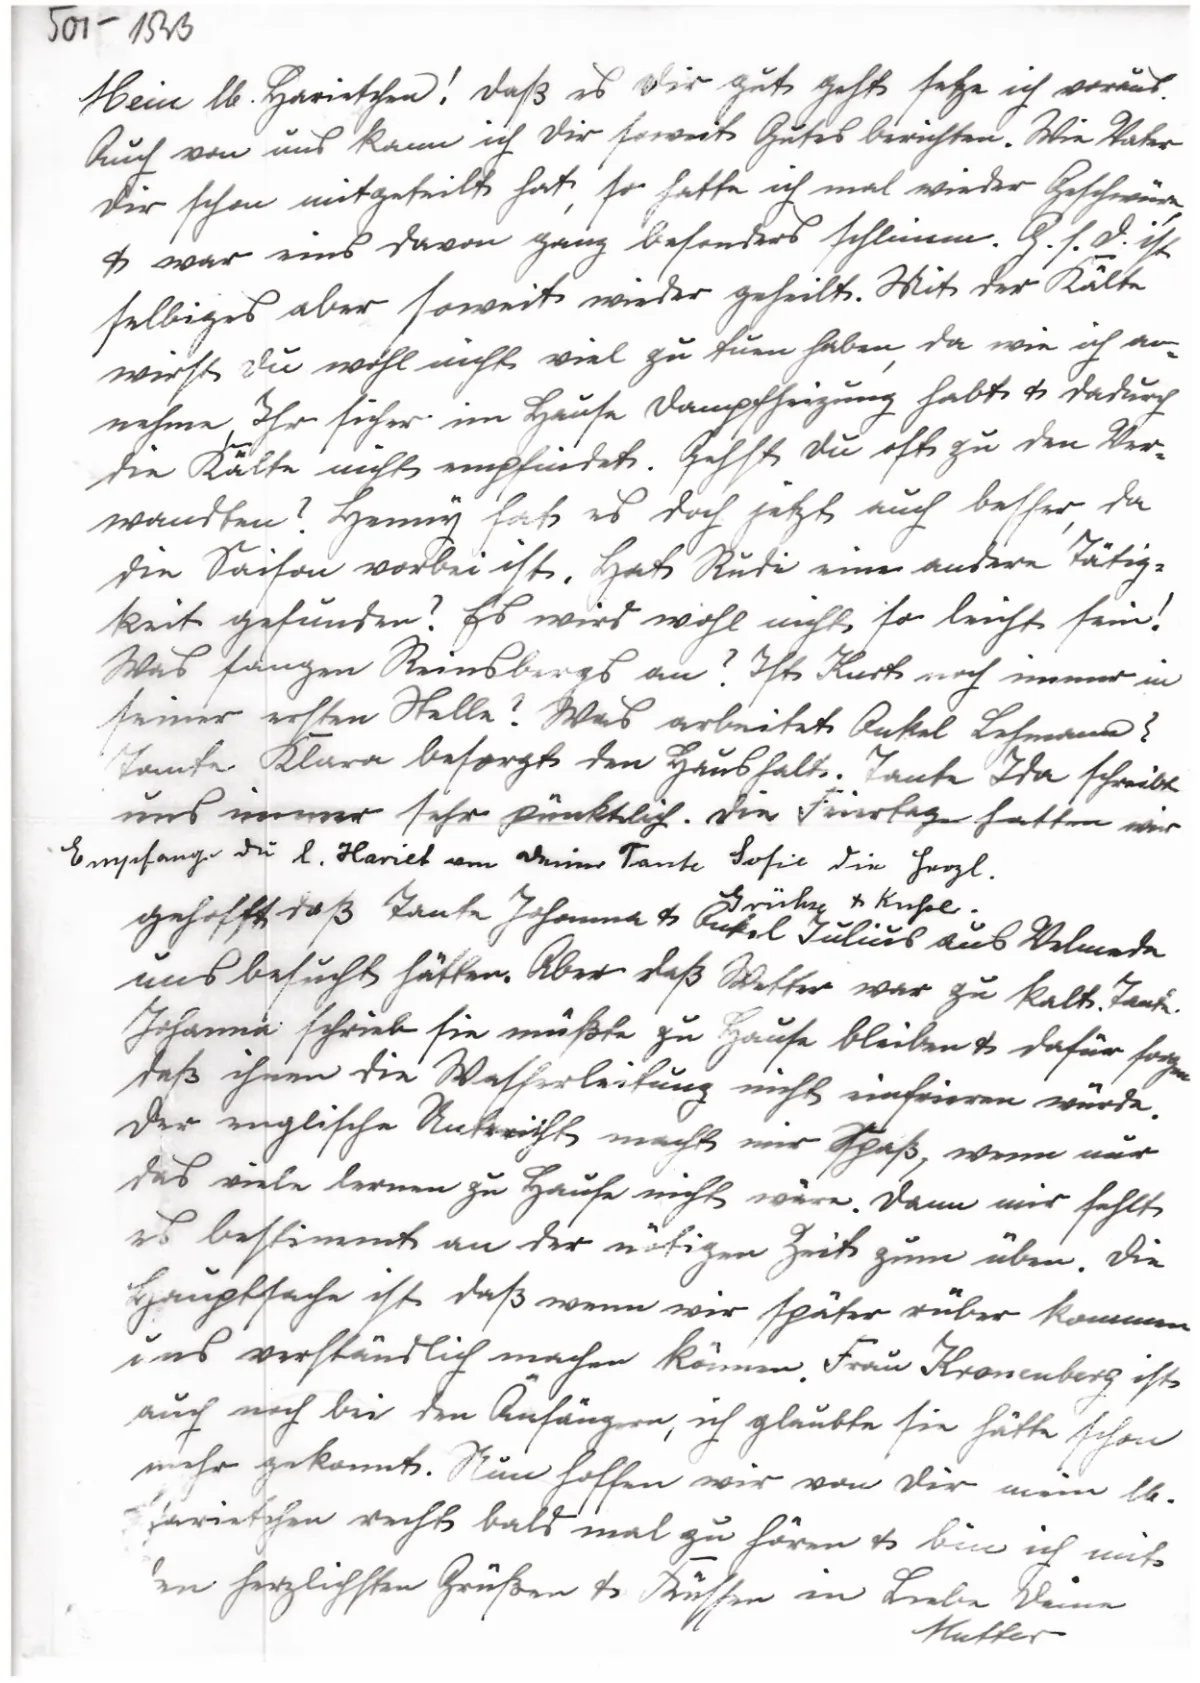 501-1533
Mein lb. Harietchen! Daß es Dir gut geht setze ich voraus.
Auch von uns kann ich Dir soweit Gutes berichten. Wie Vater
Dir schon mitgeteilt hat, so hatte ich mal wieder Geschwüre
& war eins davon ganz besonders schlimm. G. s. D. ist
selbiges aber soweit wieder geheilt. Mit der Kälte
wirst Du wohl nicht viel zu tuen haben, da wie ich an=
nehme, Ihr sicher im Hause Dampfheizung habt & dadurch
die Kälte nicht empfindet. Gehst Du oft zu den Ver=
wandten? Henny hat es doch jetzt auch besser, da
die Saison vorbei ist. Hat Rudi eine andere Tätig=
keit gefunden? Es wird wohl nicht so leicht sein!
Was fangen Reinsbergs an? Ist Kurt noch immer in
seiner ersten Stelle? Was arbeitet Onkel Lehmann?
Tante Klara besorgt den Haushalt. Tante Ida schreibt
uns immer sehr pünktlich. Die Feiertage hatten wir
Empfange Du l. Hariet von Deiner Tante Sofie die herzl.
Grüße & Küsse.
gehofft daß Tante Johanna & Onkel Julius aus Velmede
uns besucht hätten. Aber daß Wetter war zu kalt. Tante
Johanna schrieb sie müßte zu Hause bleiben & dafür sorgen
daß ihnen die Wasserleitung nicht einfrieren würde.
Der englische Unterricht macht mir Spaß, wenn nur
das viele lernen zu Hause nicht wäre. Denn mir fehlt
es bestimmt an der nötigen Zeit zum üben. Die
Hauptsache ist daß wenn wir später rüber kommen
uns verständlich machen können. Frau Kronenberg ist
auch noch bei den Anfängern, ich glaubte sie hätte schon
mehr gekonnt. Nun hoffen wir von Dir mein lb.
Harietchen recht bald mal zu hören & bin ich mit
den herzlichsten Grüßen & Küssen in Liebe Deine
Mutter